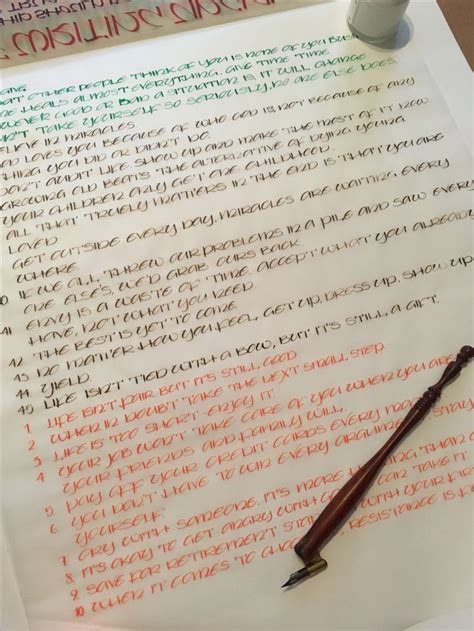 WRITING
THAT OTHER PEOPLE THINK OF YOU IS NONE OF YOU BUSI
HEALS ALMOST EVERYTHING. GIVE TIME TIME
HOWEVER GOOD OR BAD A SITUATION IS IT WILL CHANGE
DON'T TAKE YOURSELF SO SERIOUSLY, NO ONE ELSE DOES.
BELIEVE IN MIRACLES
GOD LOVES YOU BECAUSE OF WHO GOD IS, NOT BECAUSE OF ANY
THING YOU DID OR DIDN'T DO.
DON'T AUDIT LIFE. SHOW UP AND MAKE THE MOST OF IT NOW
GROWING OLD BEATS THE ALTERNATIVE OF DYING YOUNG.
YOUR CHILDREN ONLY GET ONE CHILDHOOD.
ALL THAT TRUELY MATTERS IN THE END IS THAT YOU ARE
LOVED
GET OUTSIDE EVERY DAY. MIRACLES ARE WAITING, EVERY
WHERE.
40 IF WE ALL THREW OUR PROBLEMS IN A PILE AND SAW EVERY
ONE ELSES, WE'D GRAB OURS BACK
41 ENVY IS A WASTE OF TIME. ACCEPT WHAT YOU ALREADY
HAVE, NOT WHAT YOU NEED
42 THE BEST IS YET TO COME
43 NO MATTER HOW YOU FEEL, GET UP, DRESS UP, SHOW UP
44 YIELD
45 LIFE ISN'T TIED WITH A BOW, BUT IT'S STILL A GIFT.
1. LIFE ISN'T FAIR BUT IT'S STILL GOOD
2 WHEN IN DOUBT TAKE THE NEXT SMALL STEP
3 LIFE IS TOO SHORT. ENJOY IT.
4 YOUR JOB WON'T TAKE CARE OF YOU WHEN YOU ARE
YOUR FRIENDS AND FAMILY WILL.
5 PAY OFF YOUR CREDIT CARDS EVERY
6 YOU DON'T HAVE TO WIN EVERY ARGUMENT. STAY
YOURSELF.
7 CRY WITH SOMEONE. IT'S MORE HEALING THAN
8 IT'S OKAY TO GET ANGRY WITH CAN TAKE IT.
9 SAVE FOR RETIREMENT WITH YOUR
10 WHEN IT COMES TO RESISTANCE IS